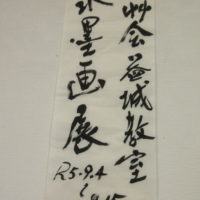 艸会益城教室
水墨画展
R5.9.4
〜
9.15